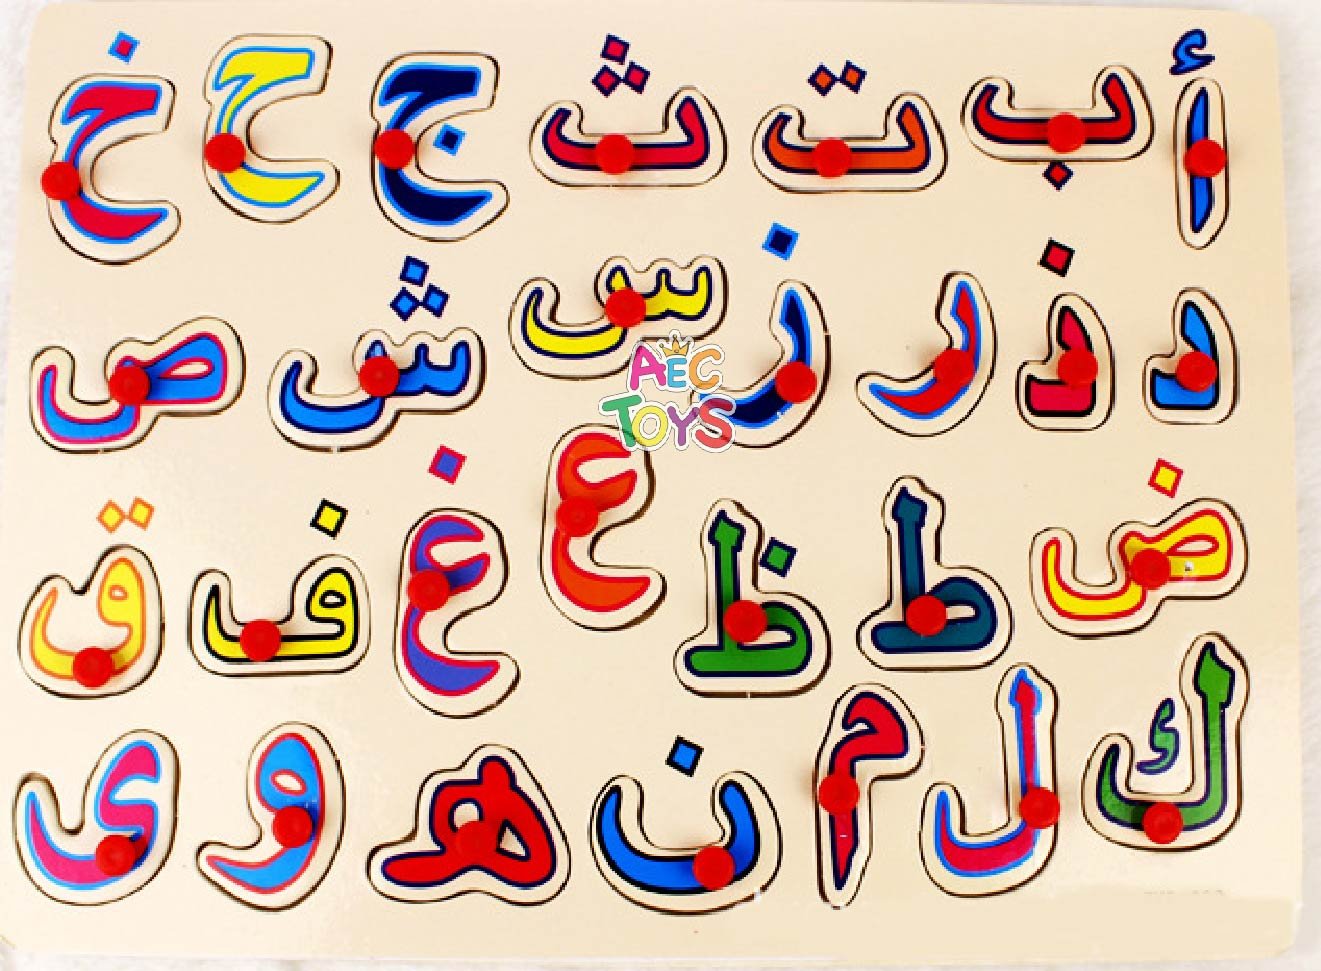 أ ب ت ث ج ح خ
د ذ ر ز س ش ص
ض ط ظ ع غ ف ق
ك ل م ن ه و ى
AEC
TOYS